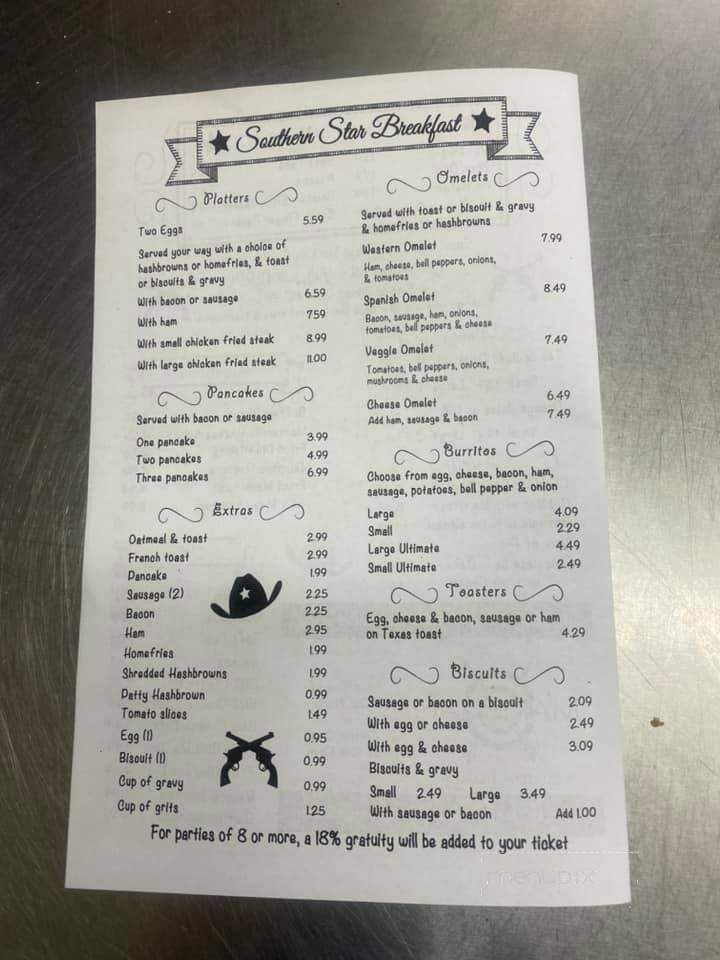 Southern Star Breakfast
Platters
Two Eggs 5.59
Served your way with a choice of
hashbrowns or homefries, & toast
or biscuits & gravy
With bacon or sausage 6.59
With ham 7.59
With small chicken fried steak 8.99
With large chicken fried steak 11.00
Pancakes
Served with bacon or sausage
One pancake 3.99
Two pancakes 4.99
Three pancakes 6.99
Extras
Oatmeal & toast 2.99
French toast 2.99
Pancake 1.99
Sausage (2) 2.25
Bacon 2.25
Ham 2.95
Homefries 1.99
Shredded Hashbrowns 1.99
Patty Hashbrown 0.99
Tomato slices 1.49
Egg (1) 0.95
Biscuit (1) 0.99
Cup of gravy 0.99
Cup of grits 1.25
Omelets
Served with toast or biscuit & gravy
& homefries or hashbrowns
Western Omelet 7.99
Ham, cheese, bell peppers, onions,
& tomatoes
Spanish Omelet 8.49
Bacon, sausage, ham, onions,
tomatoes, bell peppers & cheese
Veggie Omelet 7.49
Tomatoes, bell peppers, onions,
mushrooms & cheese
Cheese Omelet 6.49
Add ham, sausage & bacon 7.49
Burritos
Choose from egg, cheese, bacon, ham,
sausage, potatoes, bell pepper & onion
Large 4.09
Small 2.29
Large Ultimate 4.49
Small Ultimate 2.49
Toasters
Egg, cheese & bacon, sausage or ham
on Texas toast 4.29
Biscuits
Sausage or bacon on a biscuit 2.09
With egg or cheese 2.49
With egg & cheese 3.09
Biscuits & gravy
Small 2.49 Large 3.49
With sausage or bacon Add 1.00
For parties of 8 or more, a 18% gratuity will be added to your ticket